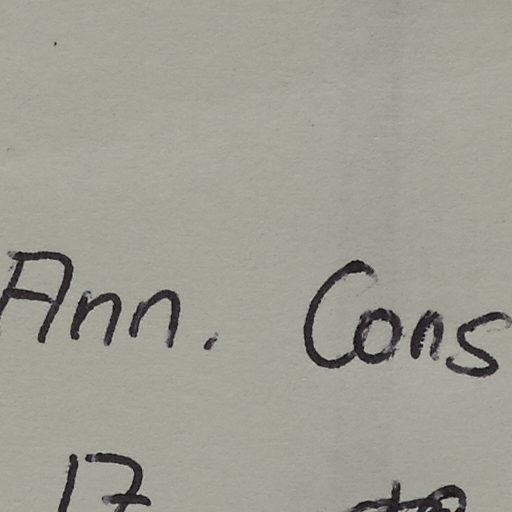 Ann. Cons
17